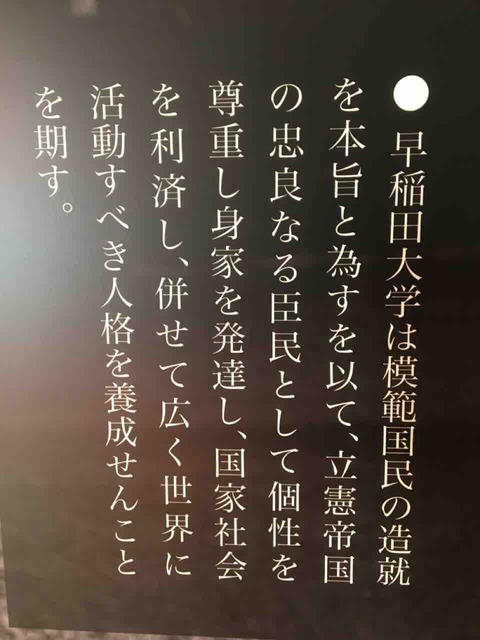 ●早稲田大学は模範国民の造就
を本旨と為すを以て、立憲帝国
の忠良なる臣民として個性を
尊重し身家を発達し、国家社会
を利済し、併せて広く世界に
活動すべき人格を養成せんこと
を期す。